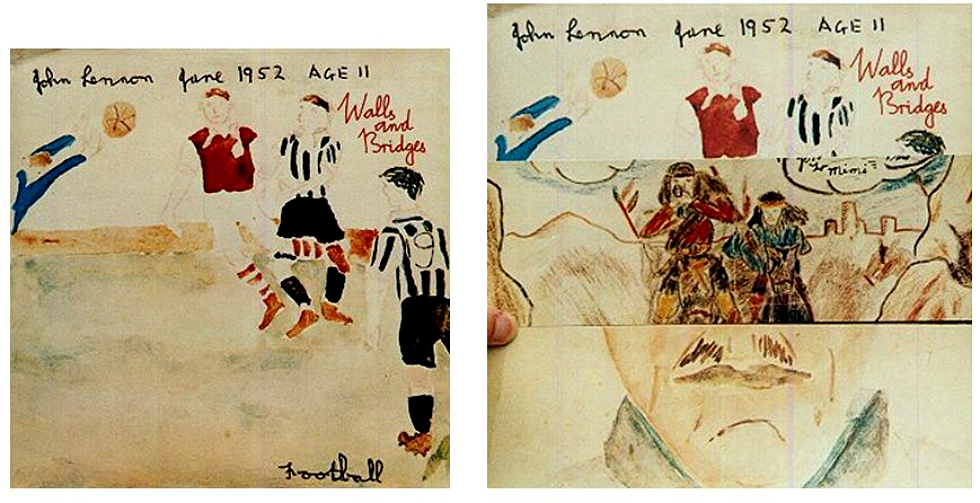 John Lennon June 1952 AGE 11
Walls
and
Bridges
Football
John Lennon June 1952 AGE 11
Walls
and
Bridges
Mimi